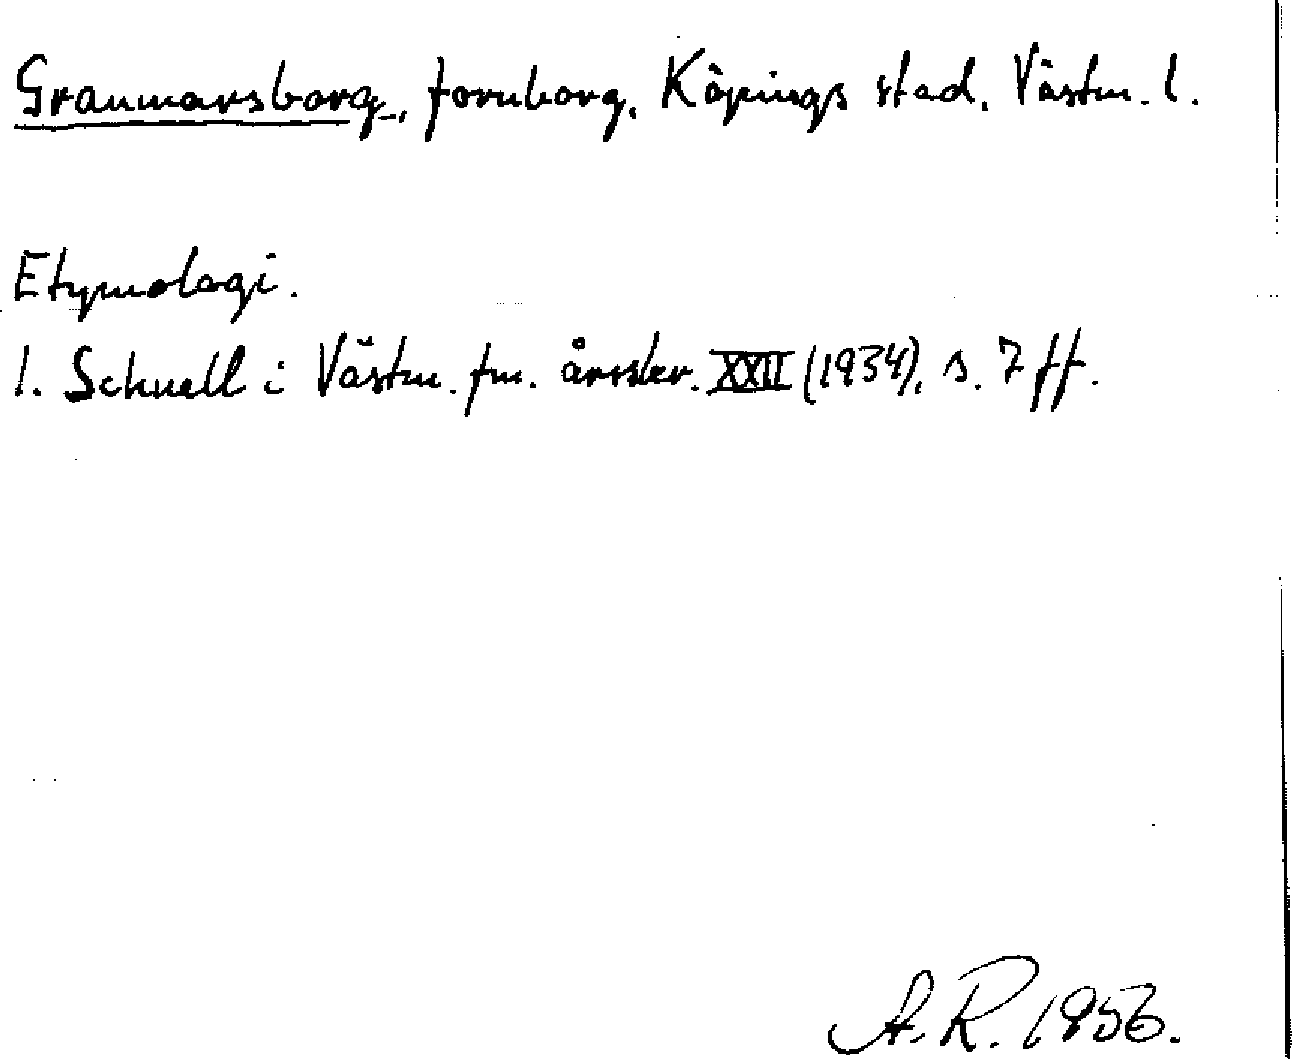 Granmarsborg, fornborg, Köpings stad, Västm. l.
Etymologi.
I. Schnell i Västm. fm. årsskr. XXII (1934), s. 7 ff.
A. R. 1956.